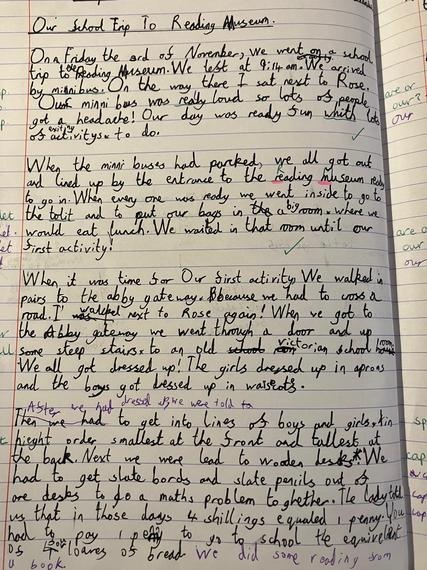 Our School Trip To Reading Museum.
On a Friday the 3rd of November, we went on a school
trip to Reading Museum. We left at 9:14 am. We arrived
by minnibus. On the way there I sat next to Rose.
Our minni bus was really loud so lots of people
got a headache! Our day was ready fun whith lots
of exiting activitys to do.
When the minni buses had parcked, we all got out
and lined up by the entrance to the reading museum ready
to go in. When every one was ready we went inside to go to
the toilit and to put our bags in the big room. where we
would eat lunch. We waited in that room until our
first activity!
When it was time for Our first activity We walked in
pairs to the abby gateway. because we had to cross a
road. I walked next to Rose again! When we got to
the Abbey gateway we went through a door and up
some steep stairs. to an old school victorian school room
We all got dressed up! The girls dressed up in aprons
and the boys got dressed up in waistcots.
After we had dressed up we were told to
Then we had to get into lines of boys and girls. in
hieght order smallest at the front and tallest at
the back. Next we were lead to wooden desks. We
had to get slate bords and slate pencils out of
are desks to do a maths problem toghether. The lady told
us that in those days 4 shillings equaled 1 penny. You
had to pay 1 penny to go to school the equivelent
of loaves of bread We did some reading from
a book.
are or
our?
our
are or
our
our